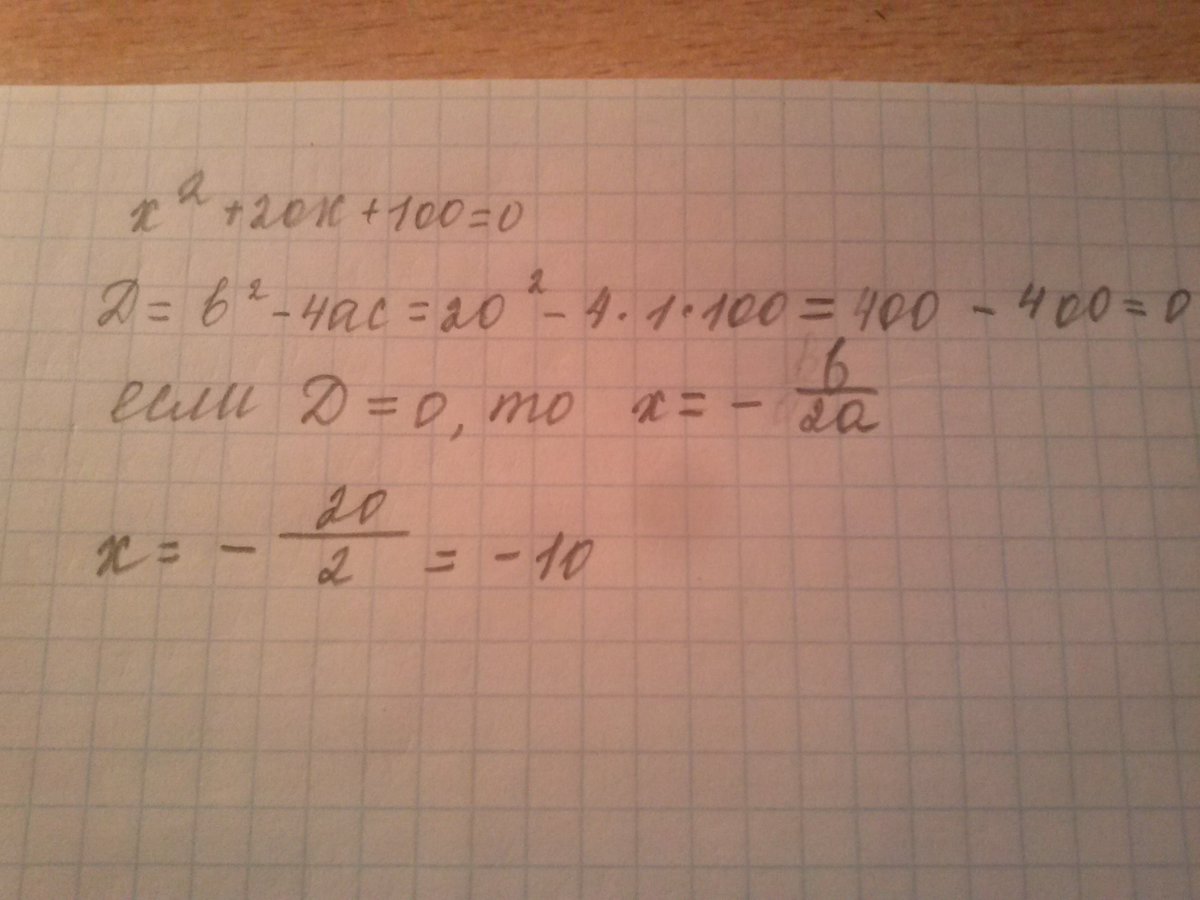 x² + 20x + 100 = 0
D = b² - 4ac = 20² - 4 · 1 · 100 = 400 - 400 = 0
если D = 0, то x = - b/2a
x = - 20/2 = -10